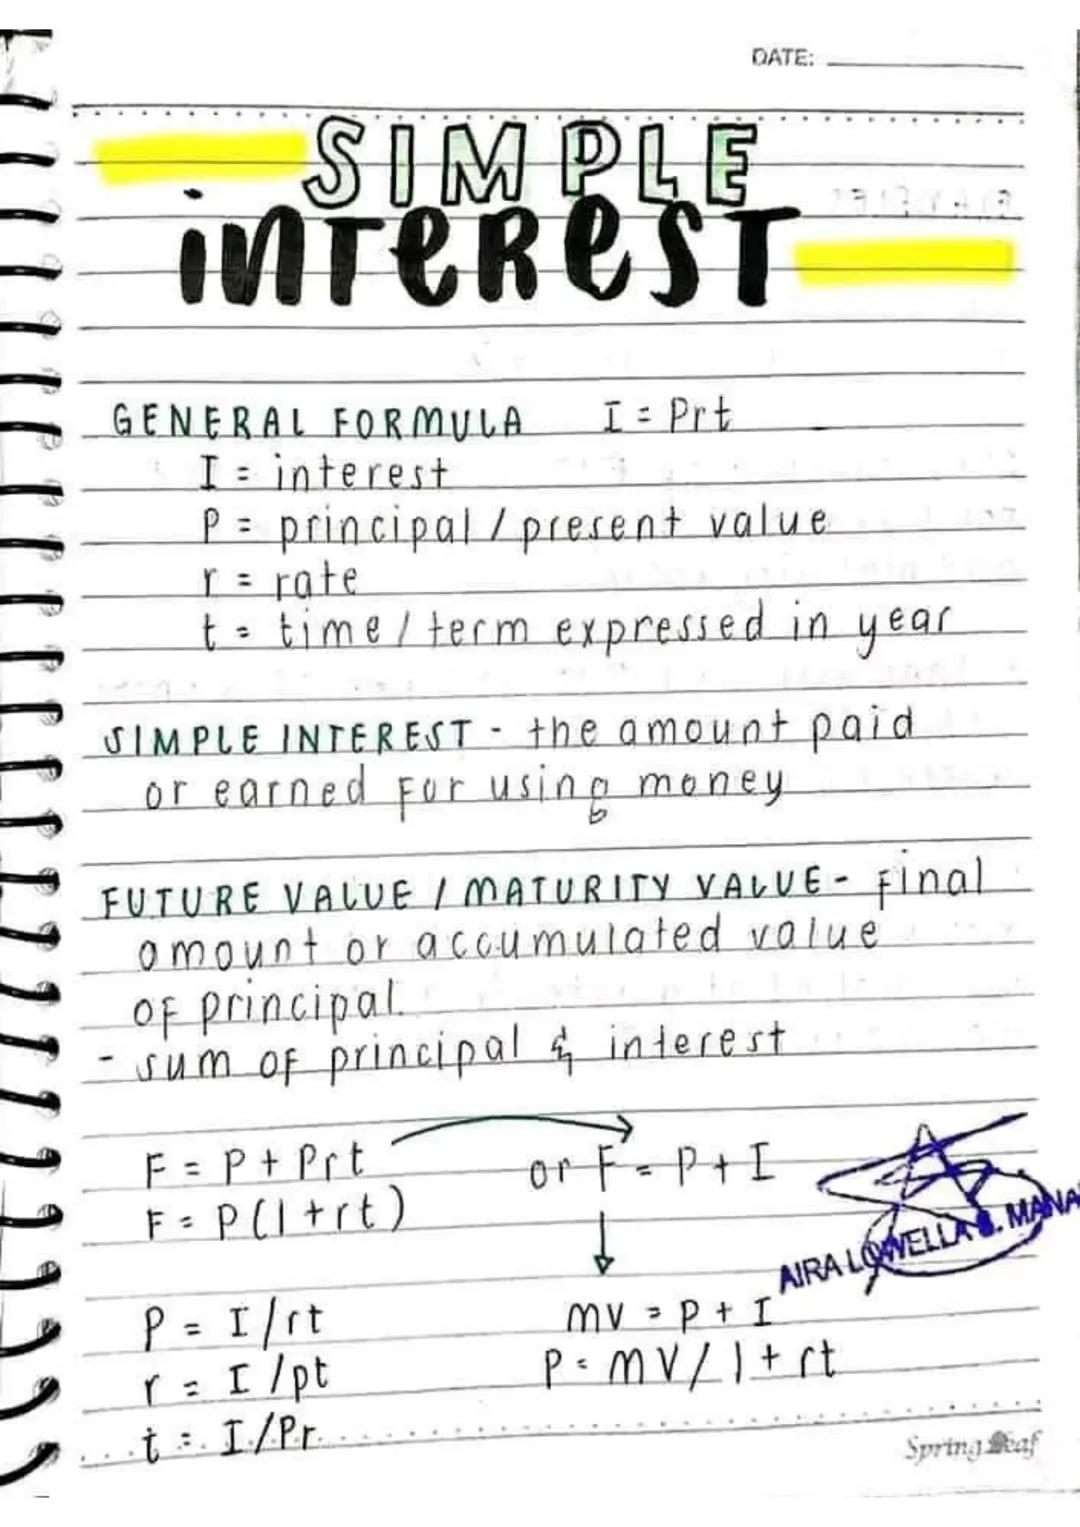 DATE:
SIMPLE
INTEREST
GENERAL FORMULA I = Prt
I = interest
P = principal / present value
r = rate
t = time / term expressed in year
SIMPLE INTEREST - the amount paid
or earned for using money
FUTURE VALUE / MATURITY VALUE - final
amount or accumulated value
of principal.
- sum of principal & interest
F = P + Prt or F = P + I
F = P(1+rt)
AIRA LOWELLA
P = I/rt mv = P + I
r = I/pt P = MV/1+rt
t = I/Pr
Spring Leaf